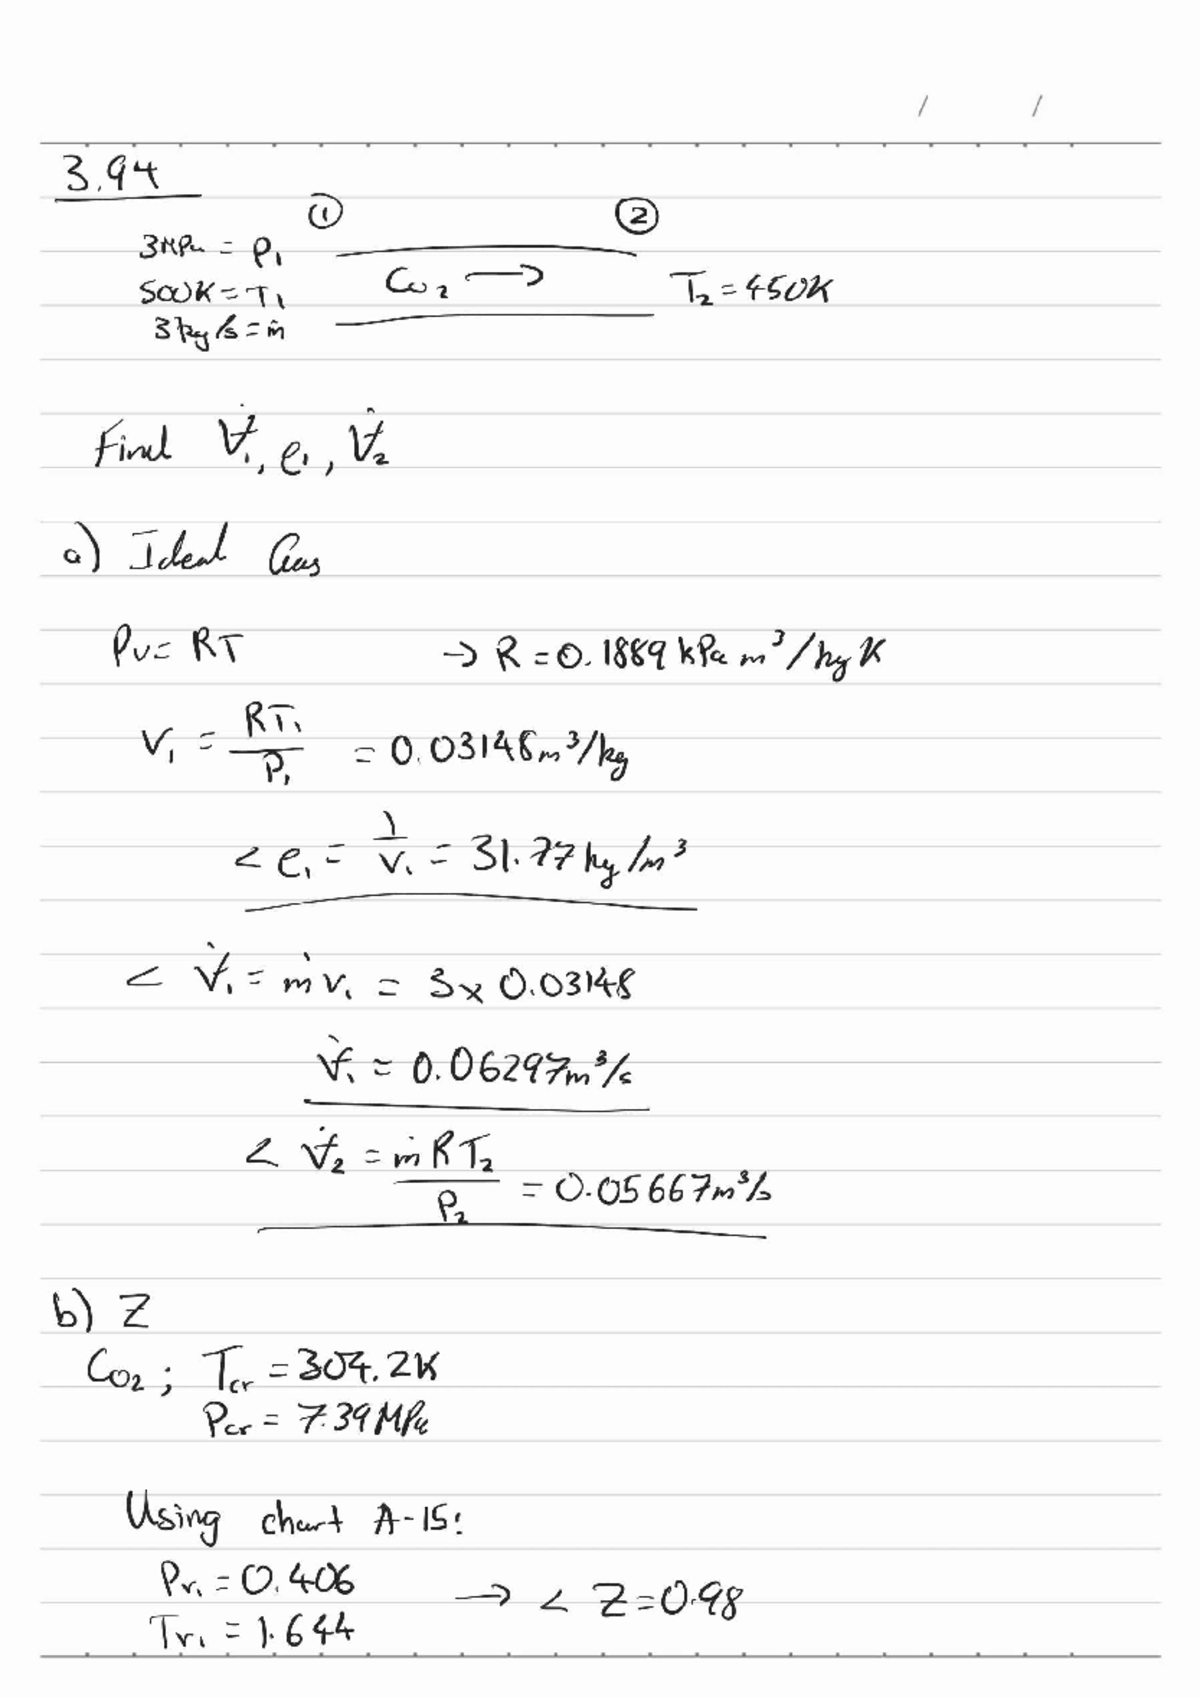 / /
3.94
① ②
3MPa = P₁
CO₂ →
500K = T₁ T₂ = 450K
3kg/s = ṁ
Find V̇₁, ρ₁, V̇₂
a) Ideal Gas
Pv = RT → R = 0.1889 kPa m³/kg K
v₁ = RT₁/P₁ = 0.03148 m³/kg
< ρ₁ = 1/v₁ = 31.77 kg/m³
< V̇₁ = ṁv₁ = 3 x 0.03148
V̇₁ = 0.06297 m³/s
< V̇₂ = ṁRT₂/P₂ = 0.05667 m³/s
b) Z
CO₂; Tcr = 304.2K
Pcr = 7.39 MPa
Using chart A-15:
Pr₁ = 0.406
→ < Z = 0.98
Tr₁ = 1.644